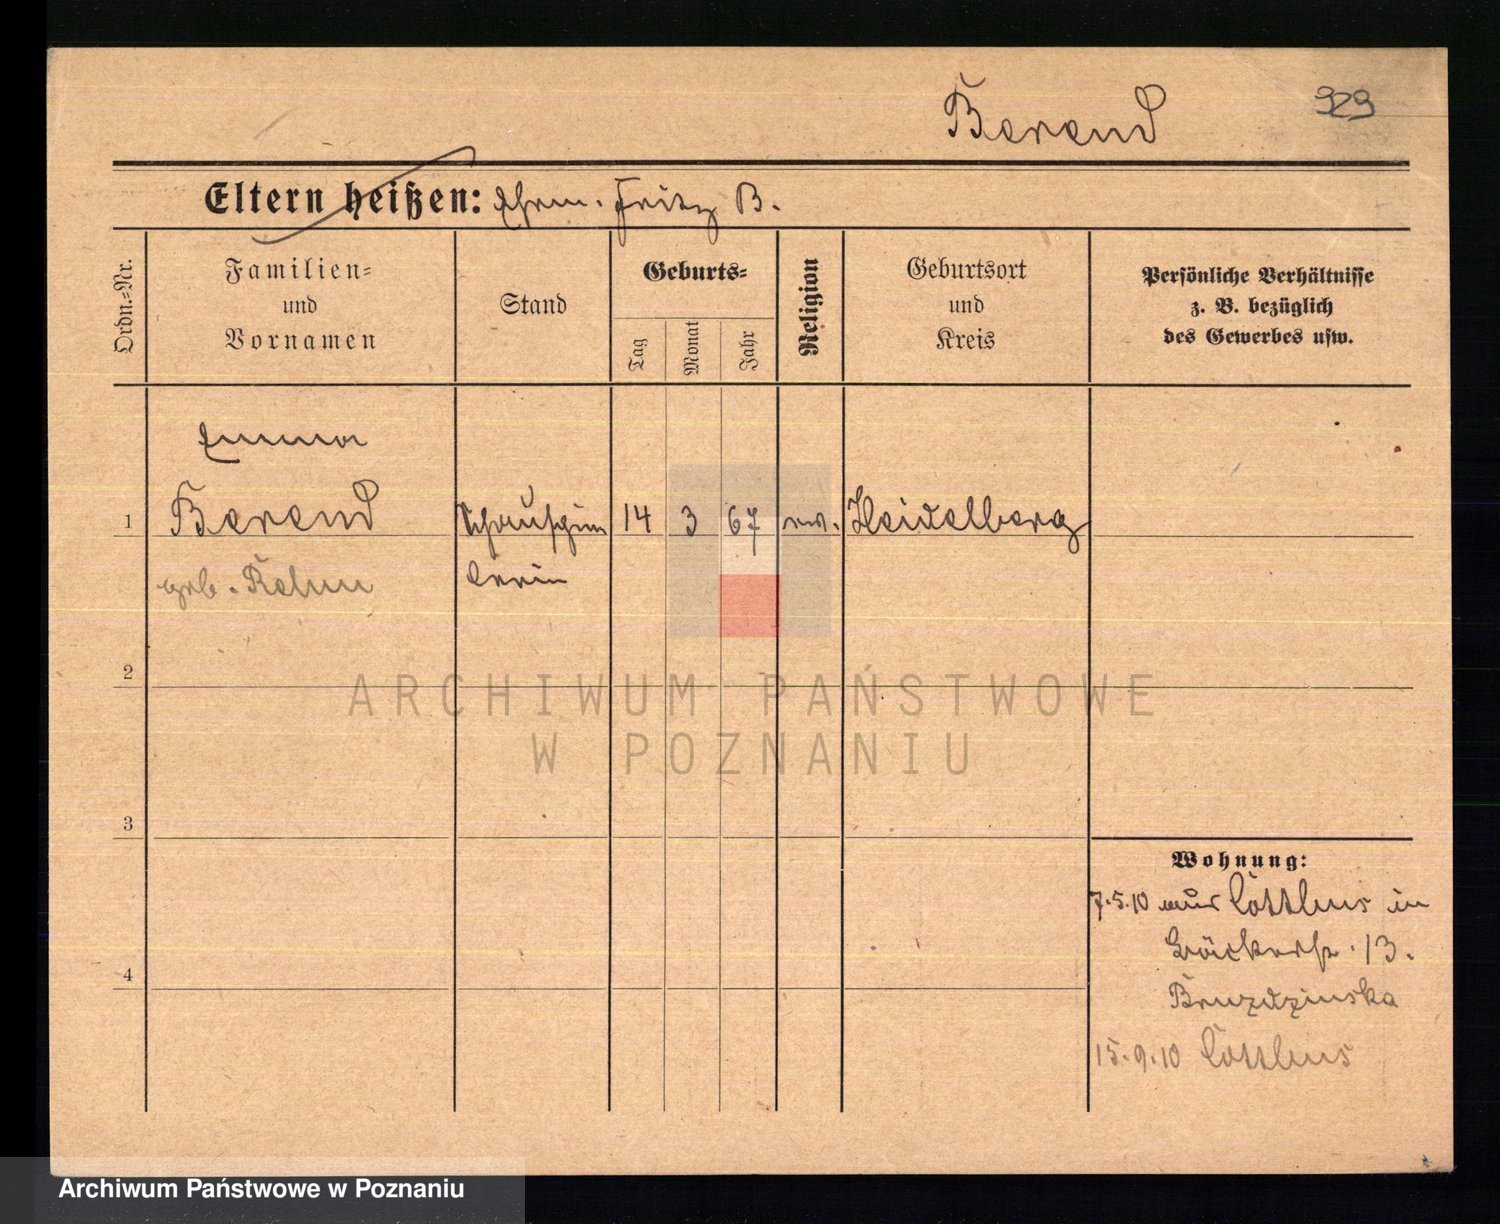 Berend 929
Eltern heißen: Ehem. Fritz B.
Ordn.=Nr.
Familien=
und
Vornamen
Stand
Geburts=
Tag
Monat
Jahr
Religion
Geburtsort
und
Kreis
Persönliche Verhältnisse
z. B. bezüglich
des Gewerbes usw.
Emma
1 Berend Schauspie 14 3 67 ev. Heidelberg
geb. lerin
2
ARCHIWUM PAŃSTWOWE
W POZNANIU
3
Wohnung:
7.5.10 aus Cottbus in
Bäckerstr. 13.
4
Bruzdzinska
15.9.10 Cottbus
Archiwum Państwowe w Poznaniu